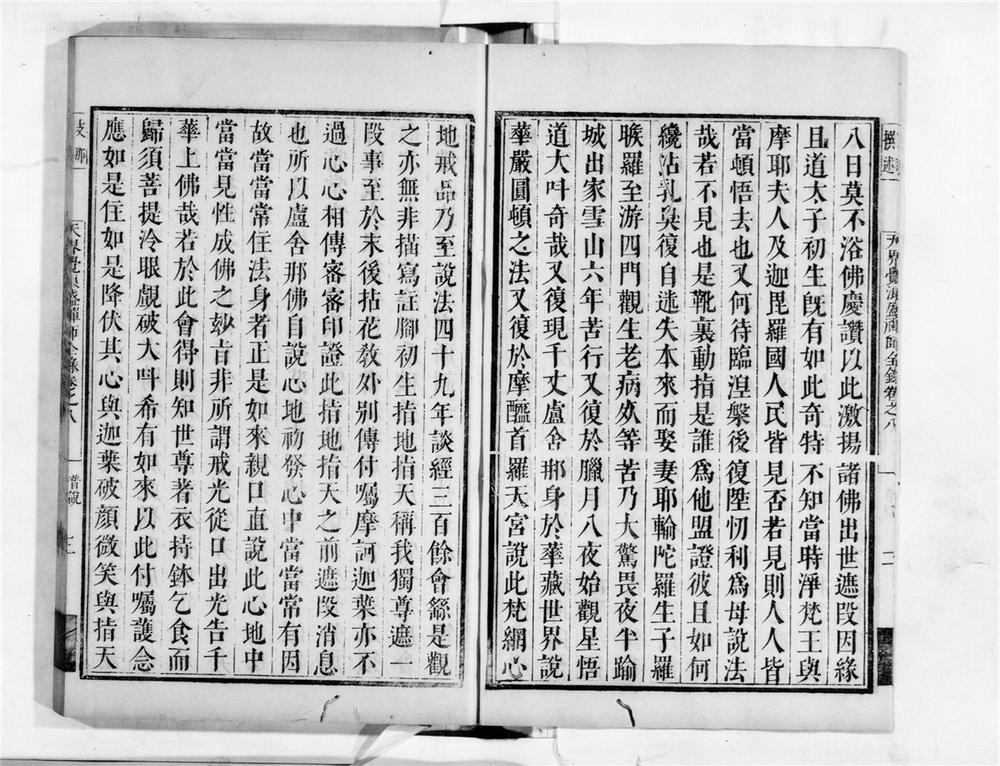 撰述
天界覺浪盛禪師全錄卷之八
二
八日莫不浴佛慶讚以此激揚諸佛出世遮段因緣
且道太子初生既有如此奇特不知當時淨梵王與
摩耶夫人及迦毘羅國人民皆見否若見則人人皆
當頓悟去也又何待臨湼槃後復陞忉利為母說法
哉若不見也是靴裏動指是誰為他盟證彼且如何
纔沾乳臭復自迷失本來而娶妻耶輸陀羅生子羅
睺羅至游四門觀生老病死等苦乃大驚畏夜半踰
城出家雪山六年苦行又復於臘月八夜始觀星悟
道大呌奇哉又復現千丈盧舍那身於華藏世界說
華嚴圓頓之法又復於摩醯首羅天宮說此梵網心
地戒品乃至說法四十九年談經三百餘會繇是觀
之亦無非描寫註腳初生指地指天稱我獨尊遮一
段事至於末後拈花教外別傳付囑摩訶迦葉亦不
過心心相傳審審印證此指地指天之前遮段消息
也所以盧舍那佛自說心地初發心中當當常有因
故當當常住法身者正是如來親口直說此心地中
當當見性成佛之玅旨非所謂戒光從口出光告千
華上佛哉若於此會得則知世尊著衣持鉢乞食而
歸須菩提冷眼覷破大呌希有如來以此付囑護念
應如是住如是降伏其心與迦葉破顏微笑與指天
支那
天界覺浪盛禪師全錄卷之八
普說
三